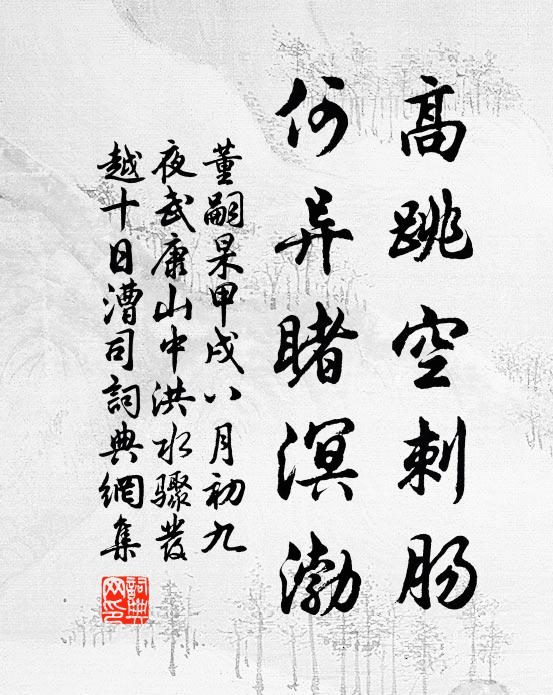 高跳空刺肠
何异睹溟渤
董嗣杲甲戌八月初九
夜武康山中洪水骤发
越十日漕司詞典網集
詞典